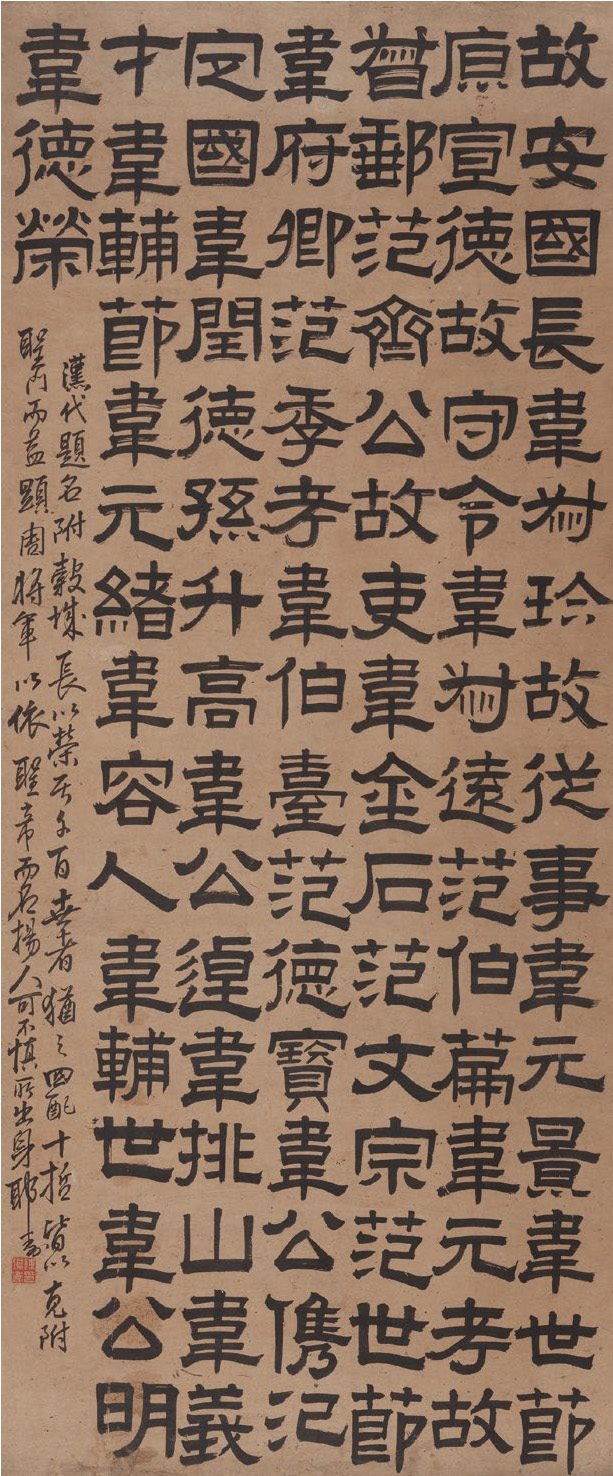 故安國長韋叔珍故從事韋元景韋世節
原宣德故守令韋叔遠范伯萹韋元考故
督郵范齊公故吏韋金石范文宗范世節
韋府卿范季考韋伯臺范德寶韋公儁氾
定國韋閏德孫升高韋公逴韋排山韋義
才韋輔節韋元緒韋容人韋輔世韋公明
韋德榮
漢代題名附穀城長以榮至千百世者猶之四配十哲皆以克附
聖門而益顯周將軍以依聖帝而名揚人可不慎所出身耶